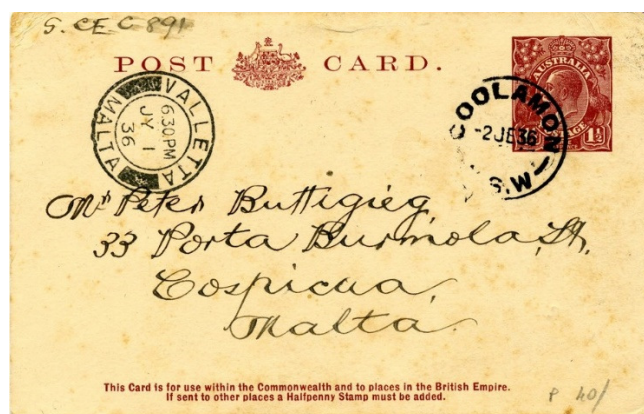 S. CEC 891
POST CARD.
AUSTRALIA
POSTAGE
1½
VALLETTA
6.30PM
JY 1
36
MALTA
COOLAMON
-2JE36
S.W
Mr Peter Buttigieg,
33 Porta Burmola, St,
Cospicua,
Malta.
This Card is for use within the Commonwealth and to places in the British Empire.
If sent to other places a Halfpenny Stamp must be added.
P 40/